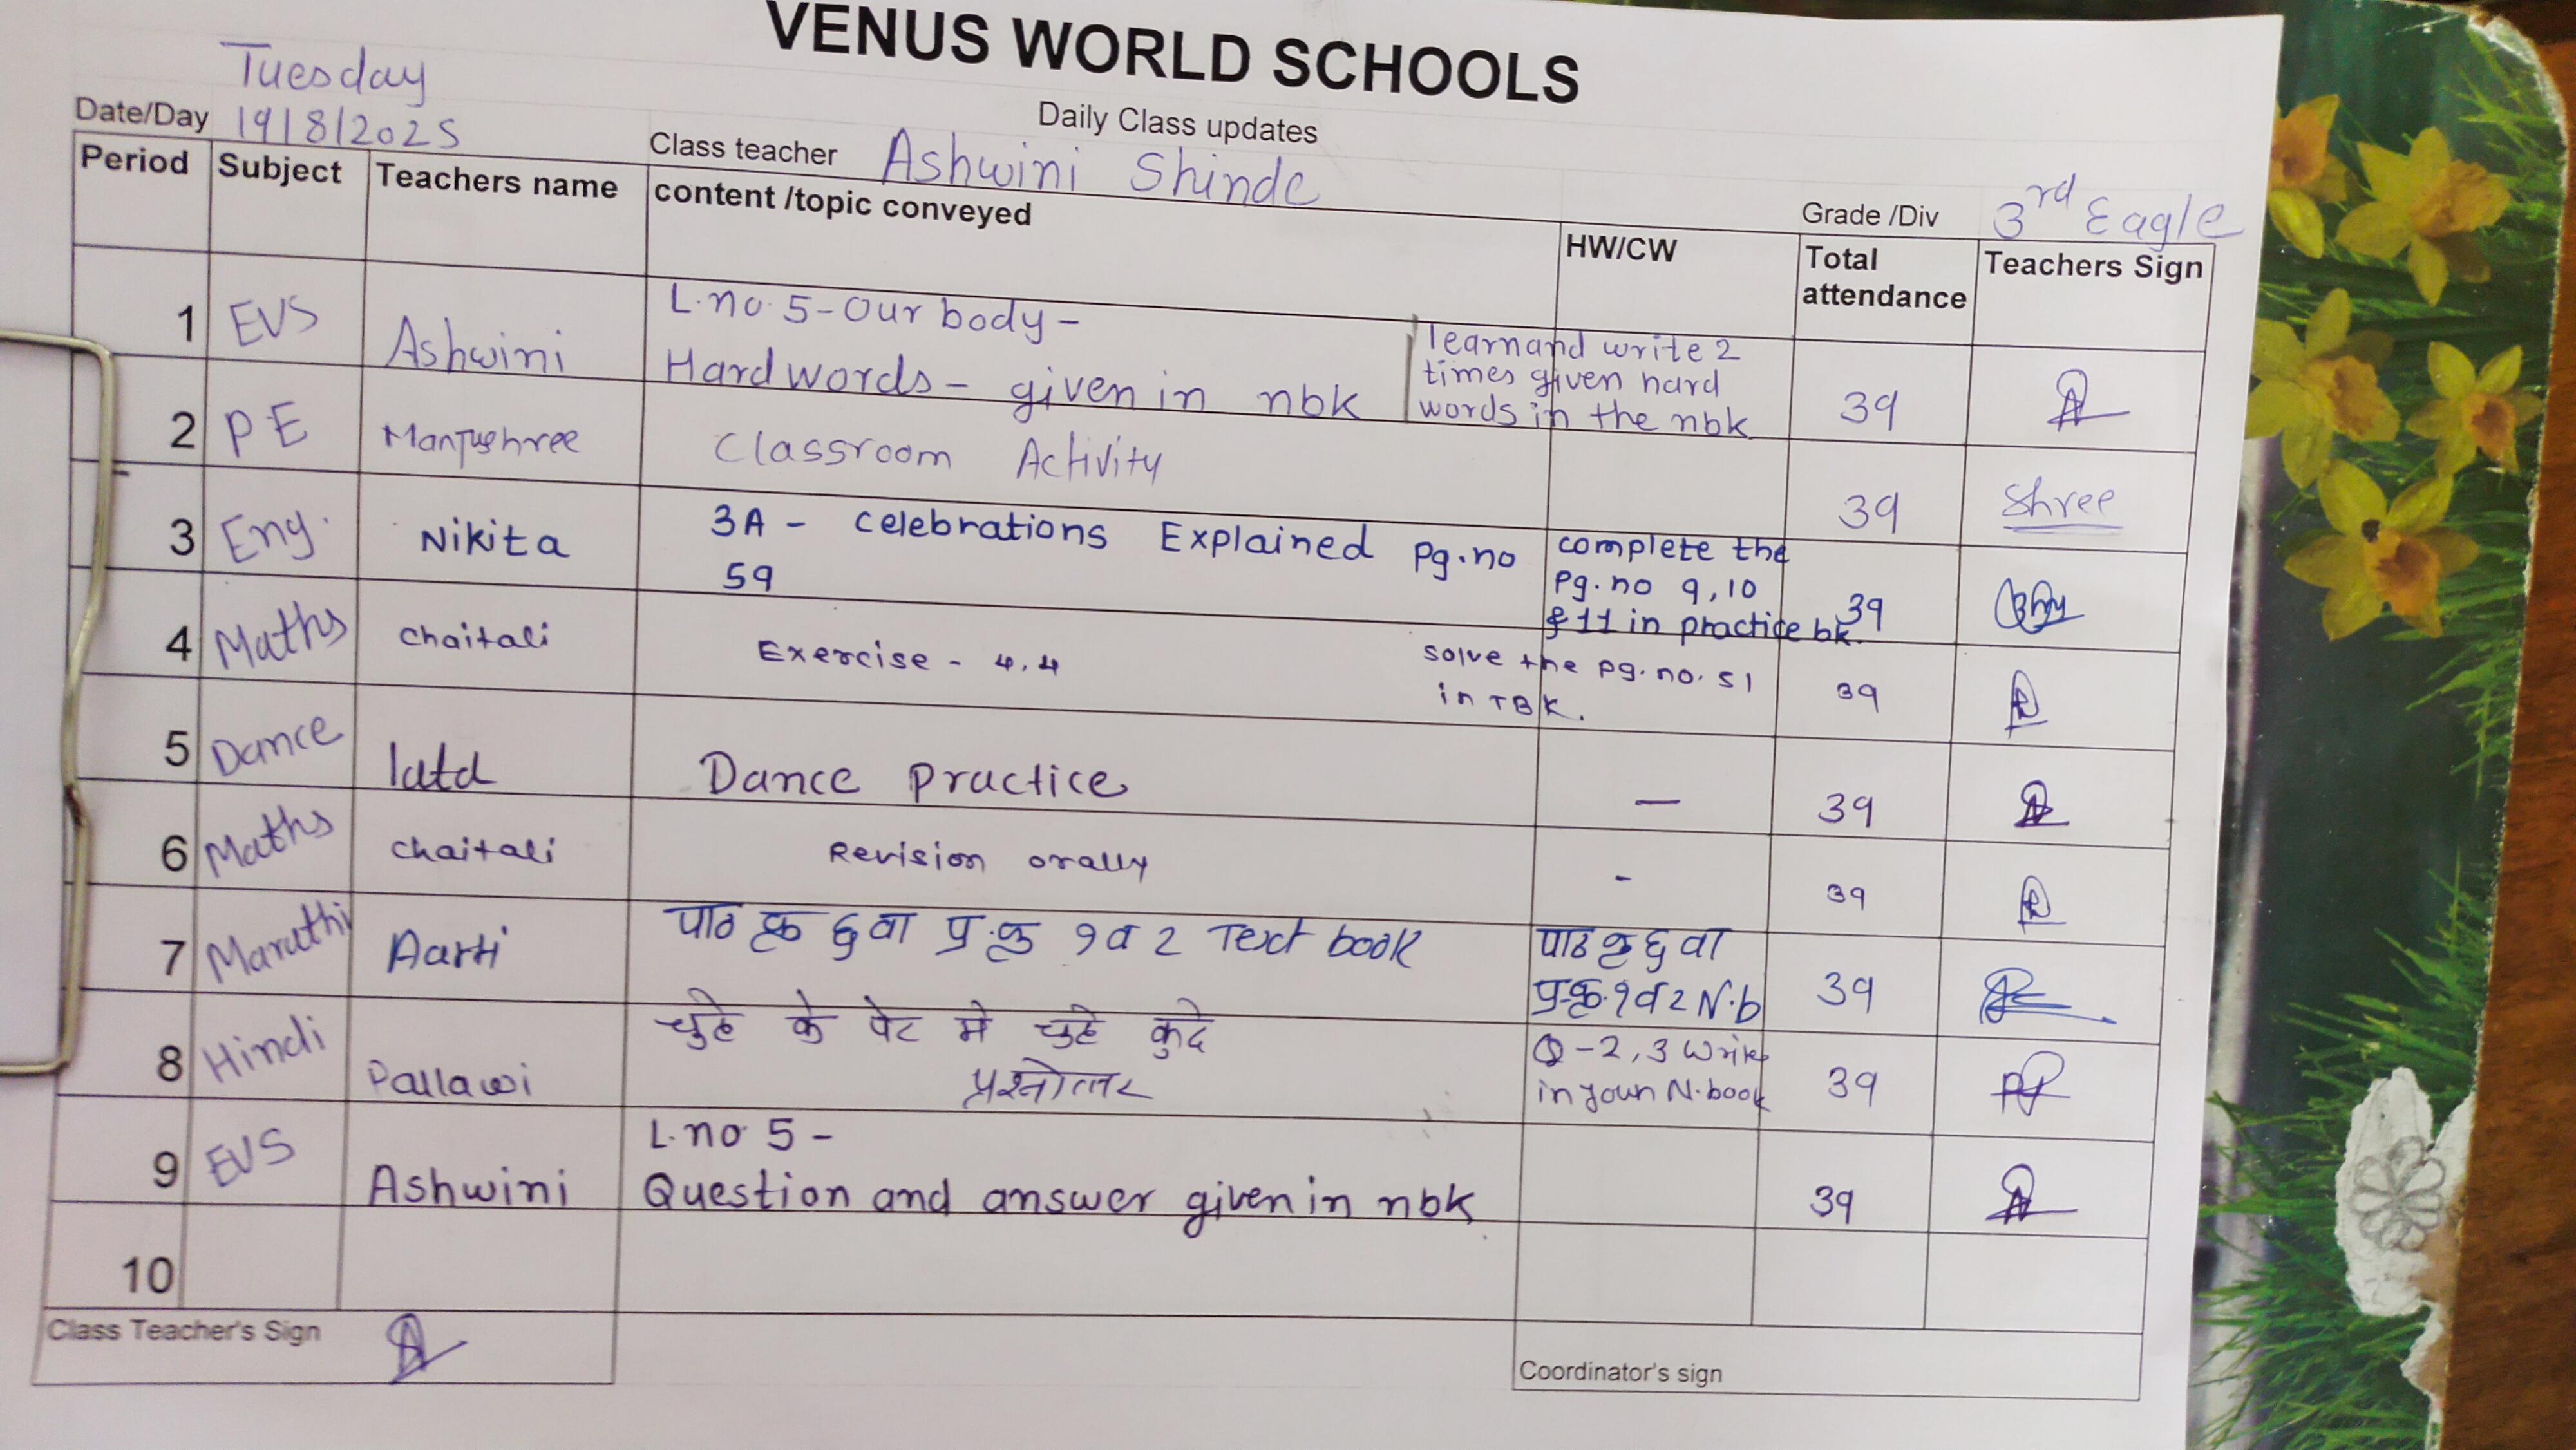 VENUS WORLD SCHOOLS
Daily Class updates
Tuesday
Date/Day 19/8/2025
Class teacher Ashwini Shinde
Grade /Div 3rd Eagle
Period Subject Teachers name content /topic conveyed HW/CW Total attendance Teachers Sign
1 EVS Ashwini L.no.5-Our body-
Hard words- given in nbk
learn and write 2
times given hard
words in the nbk
39
2 P.E Manjushree Classroom Activity 39 Shree
3 Eng. Nikita 3A - Celebrations Explained Pg.no
59
complete the
Pg.no 9,10
& 11 in practice bk.
39
4 Maths Chaitali Exercise - 4.4
Solve the pg.no.51
in TBK.
39
5 Dance Dance Practice — 39
6 Maths Chaitali Revision orally - 39
7 Marathi Aarti पाठ क्र ६ वा प्र.क्र १ व २ Text book
पाठ क्र ६ वा
प्र.क्र.१ व २ N.b
39
8 Hindi Pallawi चुहे के पेट मे चुहे कुदे
प्रश्नोत्तर
Q-2,3 Write
in your N.book
39
9 EVS Ashwini L.no 5 -
Question and answer given in nbk
39
10
Class Teacher's Sign
Coordinator's sign